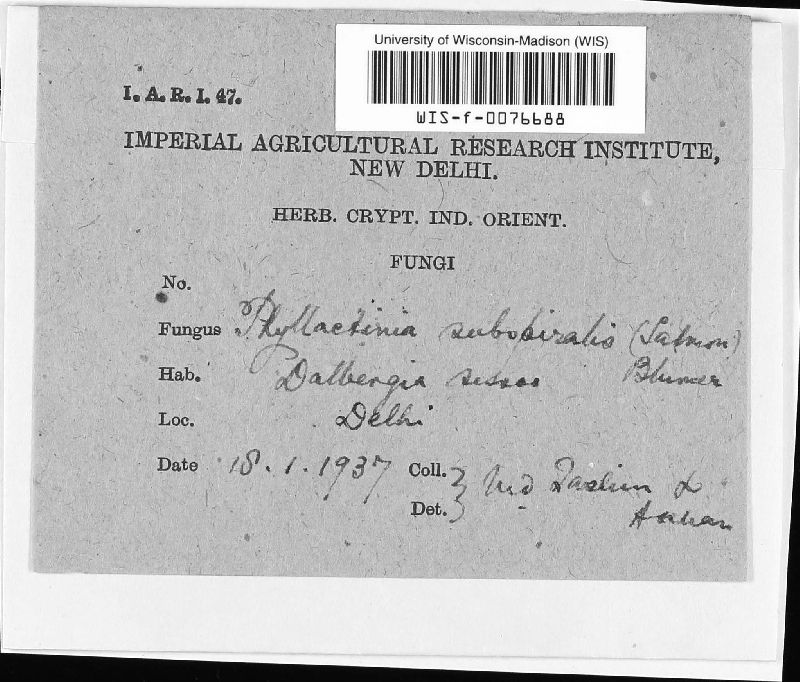 University of Wisconsin-Madison (WIS)
WIS-f-0076688
I. A. R. I. 47.
IMPERIAL AGRICULTURAL RESEARCH INSTITUTE,
NEW DELHI.
HERB. CRYPT. IND. ORIENT.
FUNGI
No.
Fungus Phyllactinia subspiralis (Salmon)
Hab. Dalbergia sissoo Blumer
Loc. Delhi
Date 18.1.1937 Coll. } Md Taslim &
Det.